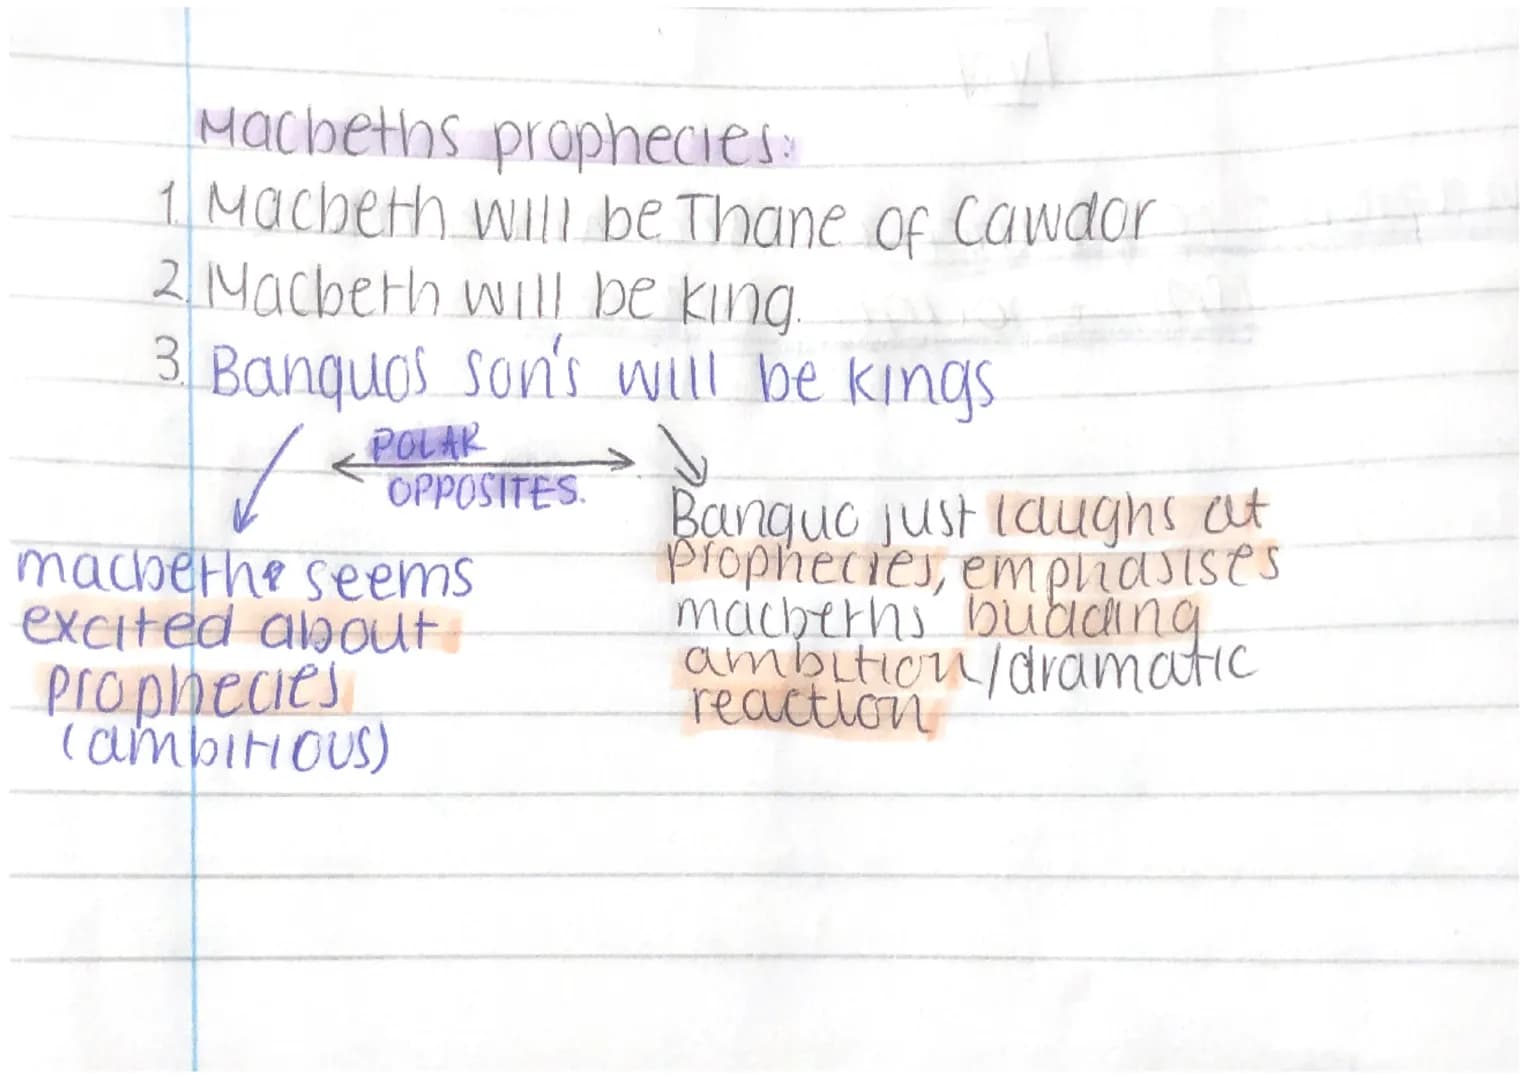 Macbeths prophecies:
1. Macbeth will be Thane of Cawdor
2. Macbeth will be king.
3. Banquos son's will be kings
POLAR
OPPOSITES.
macbethe seems
excited about
prophecies
(ambitious)
Banquo just laughs at
prophecies, emphasises
macbeths budding
ambition/dramatic
reaction